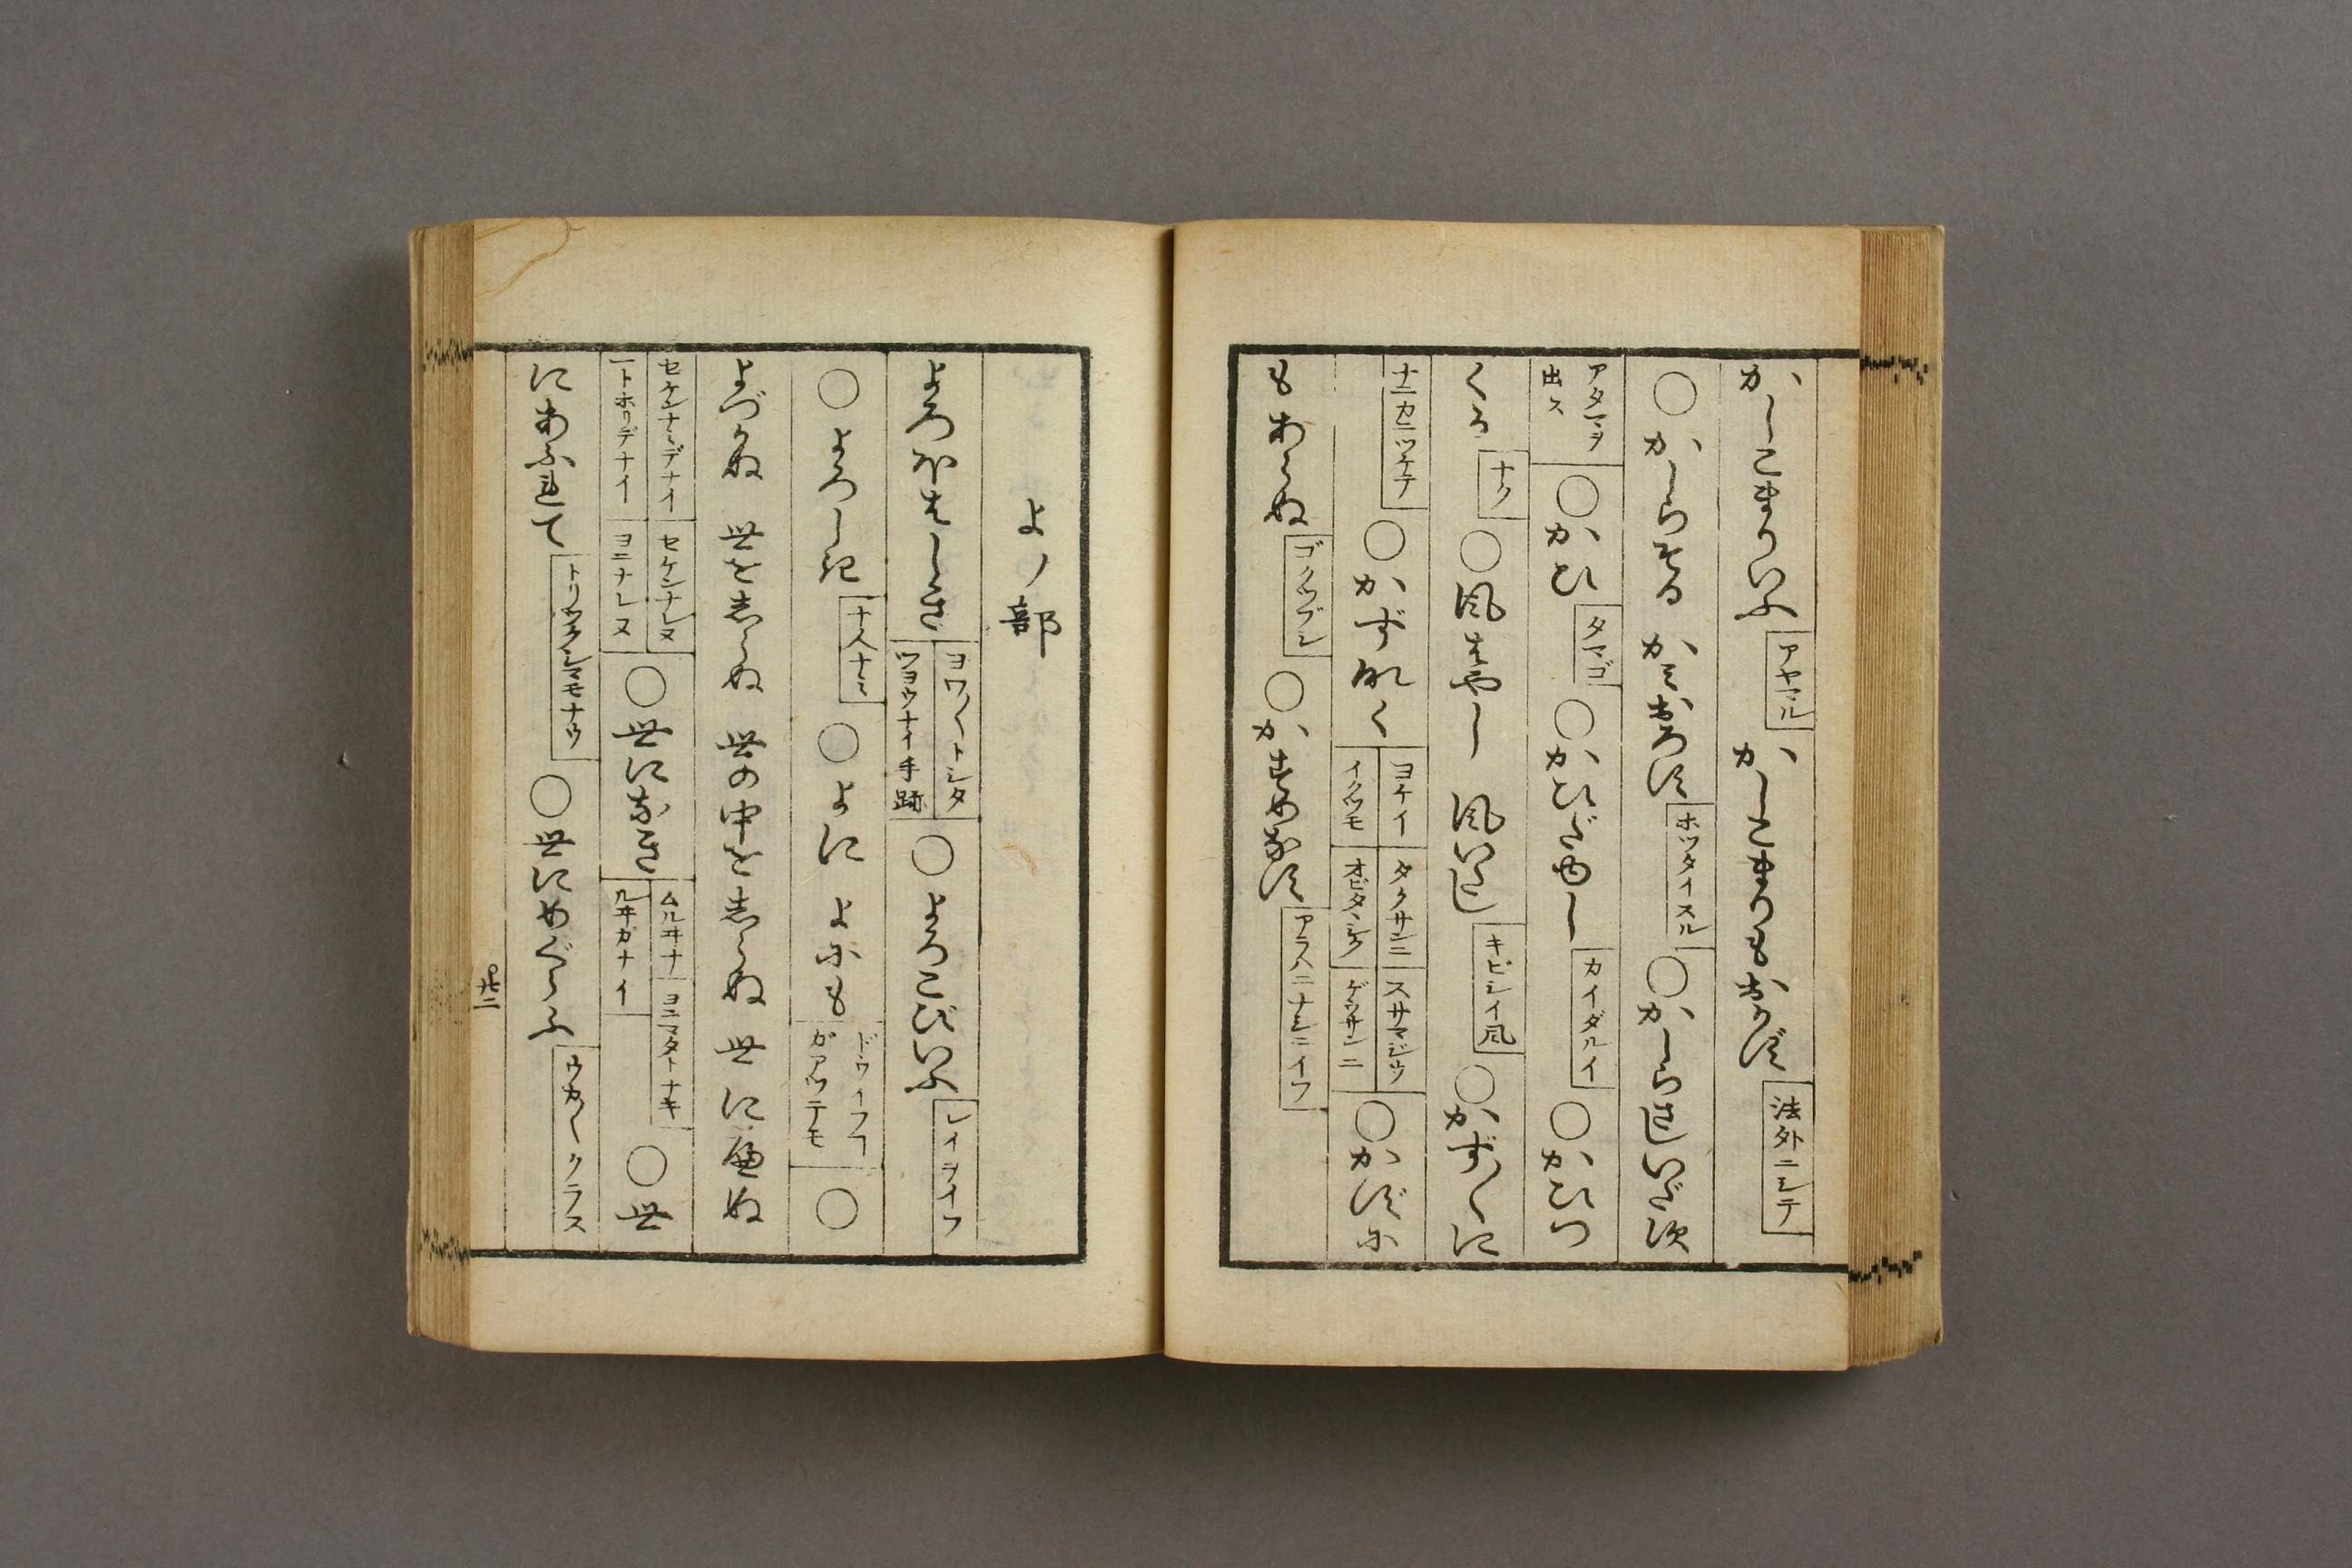 かしこまりいふ アヤマル かしこまりもおかず 法外ニシテ
○かしらそる かみおろす ホツタイスル ○かしらさしいだす
アタマヲ出ス ○かひ タマゴ ○かひだゆし カイダルイ ○かひつ
くる ナク ○風はやし 風いたし キビシイ風 ○かず〳〵に
ナニカニツケテ ○かずなく ヨケイ イクツモ タクサンニ オビタヽシク スサマジウ ゲウサンニ ○かずに
もあらぬ ゴクツブシ ○かすめなす アラハニナシニイフ
よノ部
よろぼはしき ヨワ〳〵トシタ ツヨウナイ手跡 ○よろこびいふ レイヲイフ
○よろしき 十人ナミ ○よに よにも ドウイフコガアツテモ ○
よづかぬ 世をしらぬ 世の中をしらぬ 世に馴ぬ
セケンナミデナイ 一トホリデナイ セケンナレヌ ヨニナレヌ ○世になき ムルヰナ ルヰガナイ ヨニマタトナキ ○世
にあふれて トリツクシマモナウ ○世にめぐらふ ウカ〳〵クラス